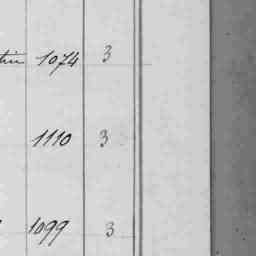 1074 3
1110 3
1099 3